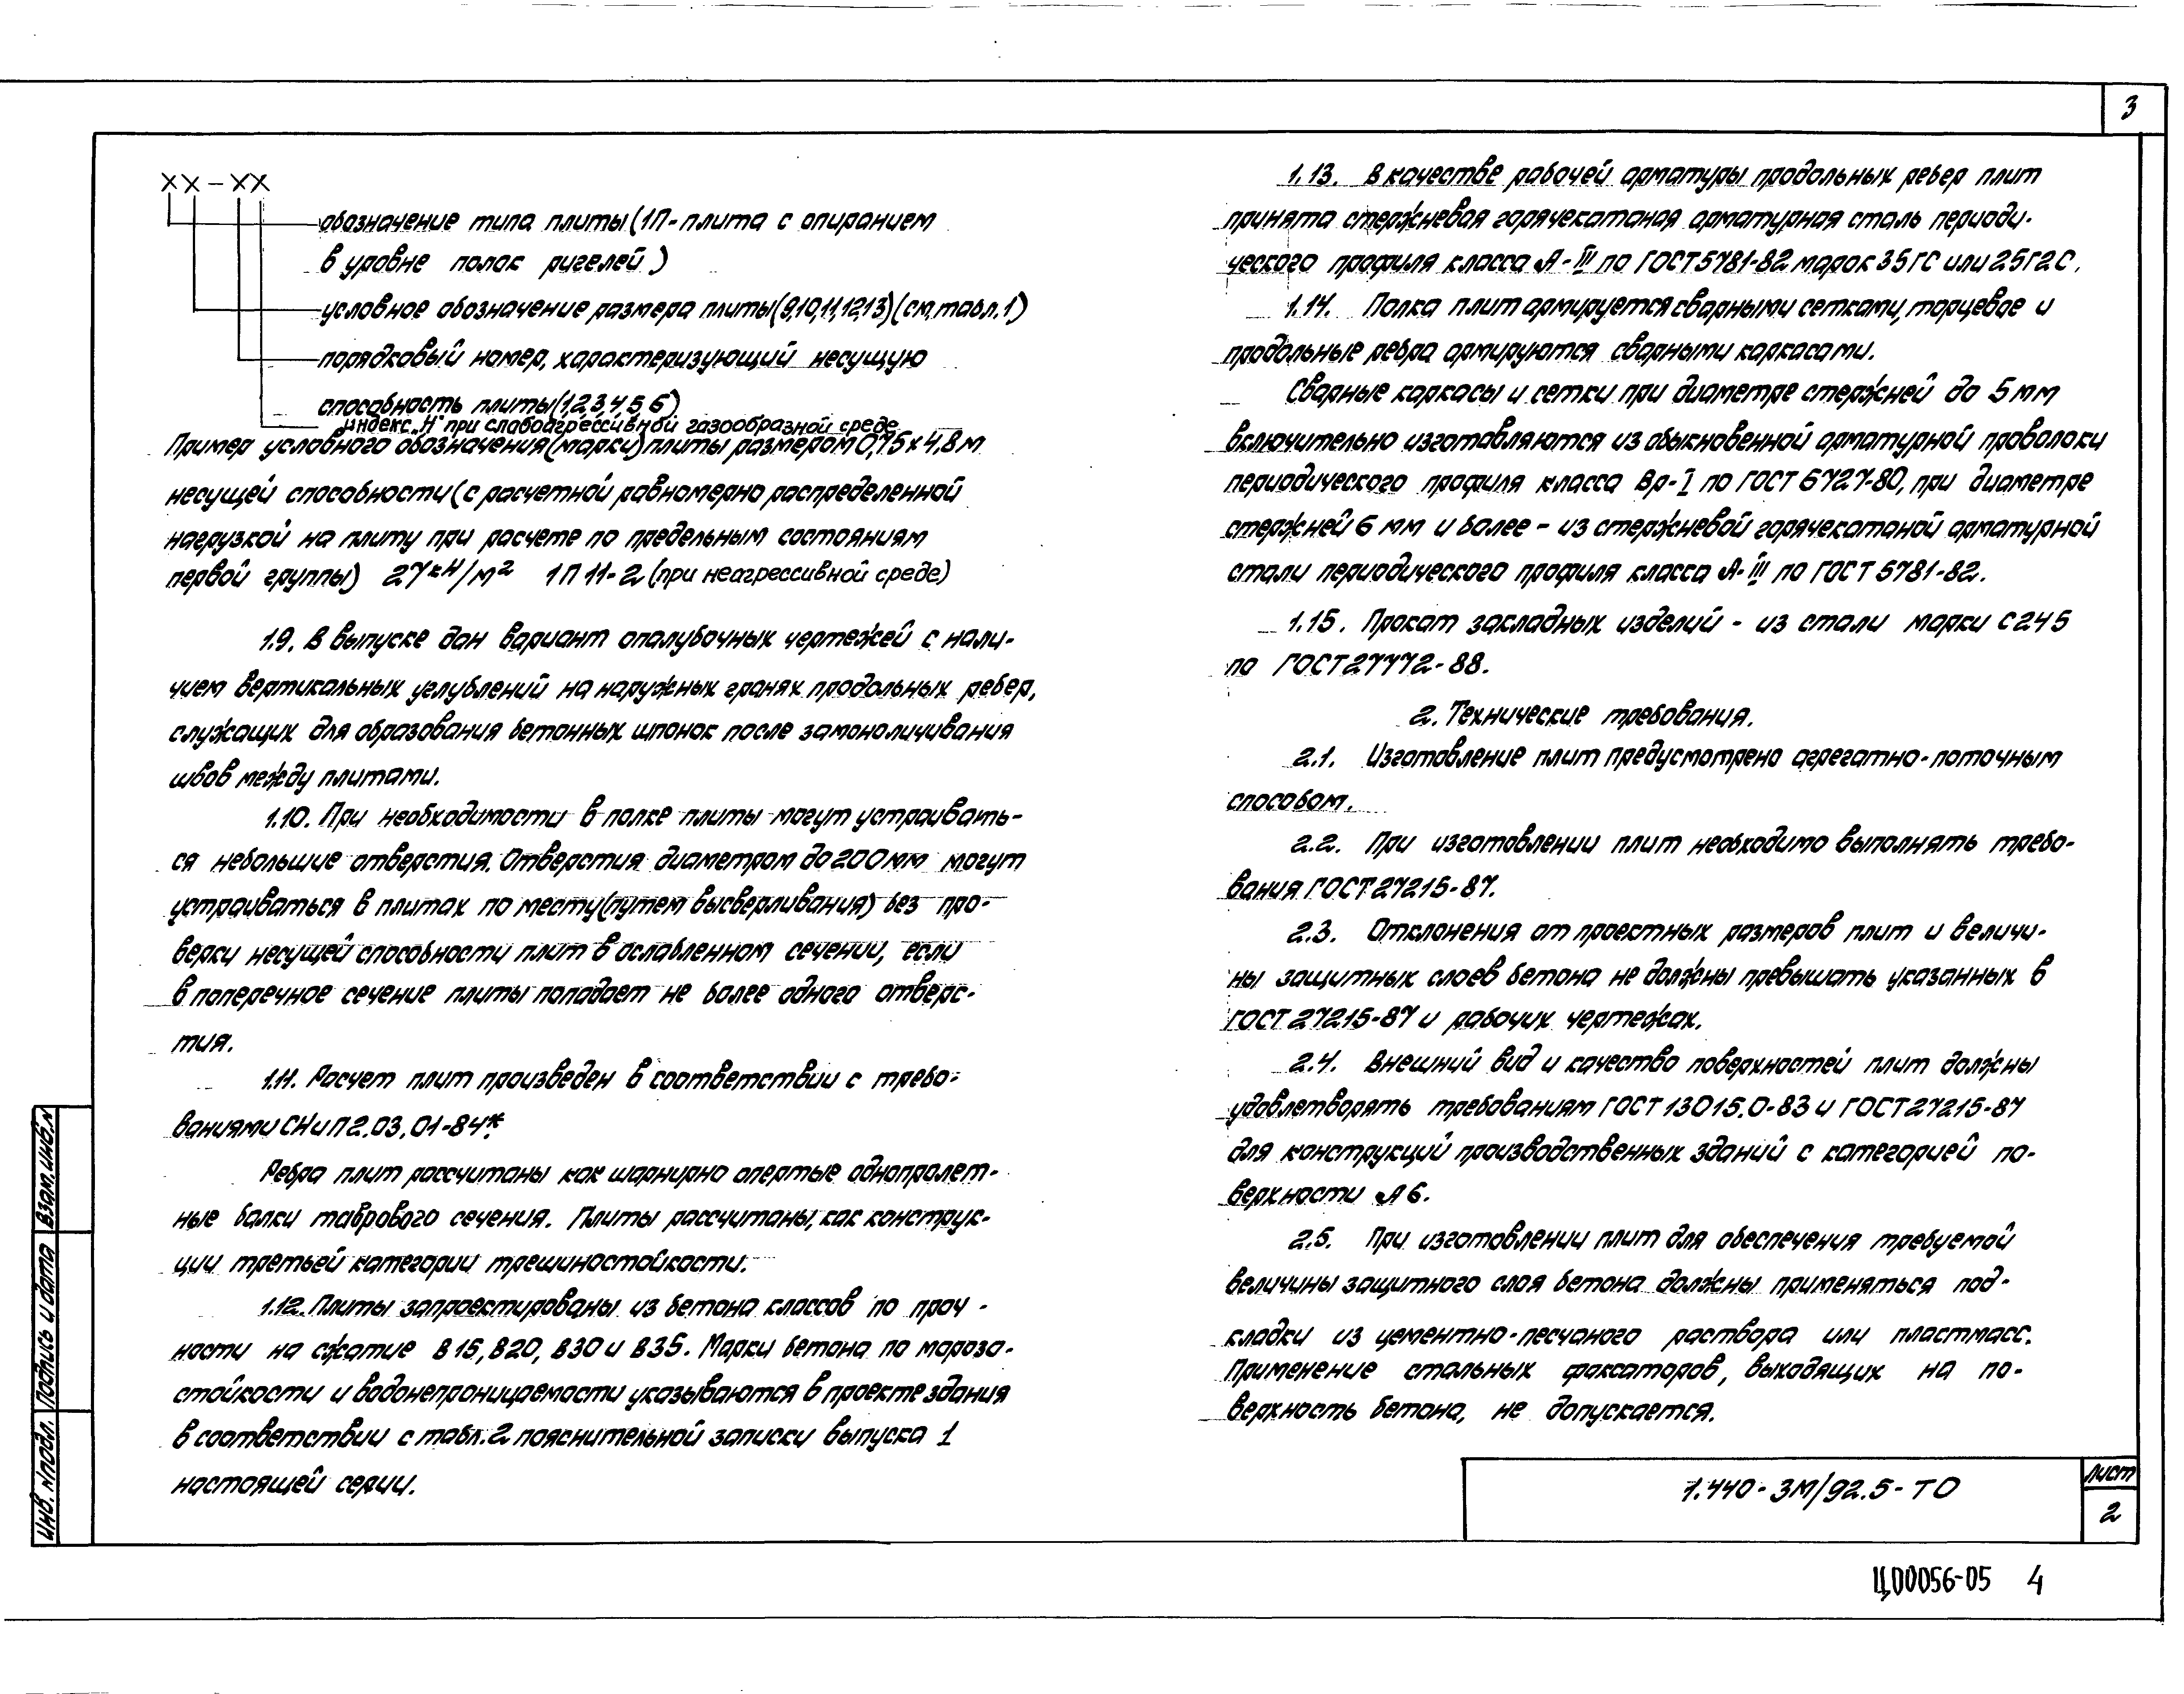 3
ХХ-ХХ
обозначение типа плиты (1П-плита с опиранием
в уровне полок ригелей)
условное обозначение размера плиты (9,10,11,12,13) (см. табл. 1)
порядковый номер, характеризующий несущую
способность плиты (1,2,3,4,5,6)
индекс „Н" при слабоагрессивной газообразной среде
Пример условного обозначения (марки) плиты размером 0,75×4,8 м
несущей способности (с расчетной равномерно распределенной
нагрузкой на плиту при расчете по предельным состояниям
первой группы) 27 кН/м² 1П11-2 (при неагрессивной среде)
1.9. В выпуске дан вариант опалубочных чертежей с нали-
чием вертикальных углублений на наружных гранях продольных ребер,
служащих для образования бетонных шпонок после замоноличивания
швов между плитами.
1.10. При необходимости в полке плиты могут устраивать-
ся небольшие отверстия. Отверстия диаметром до 200 мм могут
устраиваться в плитах по месту (путем высверливания) без про-
верки несущей способности плит в ослабленном сечении, если
в поперечное сечение плиты попадает не более одного отверс-
тия.
1.11. Расчет плит произведен в соответствии с требо-
ваниями СНиП 2.03.01-84*.
Ребра плит рассчитаны как шарнирно опертые однопролет-
ные балки таврового сечения. Плиты рассчитаны, как конструк-
ции третьей категории трещиностойкости.
1.12. Плиты запроектированы из бетона классов по проч-
ности на сжатие В15, В20, В30 и В35. Марки бетона по морозо-
стойкости и водонепроницаемости указываются в проекте здания
в соответствии с табл. 2 пояснительной записки выпуска 1
настоящей серии.
1.13. В качестве рабочей арматуры продольных ребер плит
принята стержневая горячекатаная арматурная сталь периоди-
ческого профиля класса А-III по ГОСТ 5781-82 марок 35ГС или 25Г2С.
1.14. Полка плит армируется сварными сетками, торцевое и
продольные ребра армируются сварными каркасами.
Сварные каркасы и сетки при диаметре стержней до 5 мм
включительно изготавляются из обыкновенной арматурной проволоки
периодического профиля класса Вр-I по ГОСТ 6727-80, при диаметре
стержней 6 мм и более - из стержневой горячекатаной арматурной
стали периодического профиля класса А-III по ГОСТ 5781-82.
1.15. Прокат закладных изделий - из стали марки С245
по ГОСТ 27772-88.
2. Технические требования.
2.1. Изготовление плит предусмотрено агрегатно-поточным
способом.
2.2. При изготовлении плит необходимо выполнять требо-
вания ГОСТ 27215-87.
2.3. Отклонения от проектных размеров плит и величи-
ны защитных слоев бетона не должны превышать указанных в
ГОСТ 27215-87 и рабочих чертежах.
2.4. Внешний вид и качество поверхностей плит должны
удовлетворять требованиям ГОСТ 13015.0-83 и ГОСТ 27215-87
для конструкций производственных зданий с категорией по-
верхности А6.
2.5. При изготовлении плит для обеспечения требуемой
величины защитного слоя бетона должны применяться под-
кладки из цементно-песчаного раствора или пластмасс.
Применение стальных фиксаторов, выходящих на по-
верхность бетона, не допускается.
Инв. № подл. Подпись и дата Взам. инв. №
1.440-3М/92.5-ТО
Лист
2
Ц00056-05 4